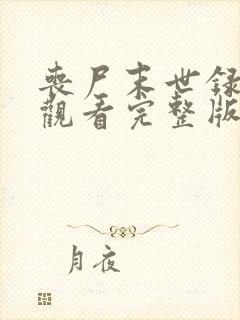 喪尸末世録
觀看完整版
月夜